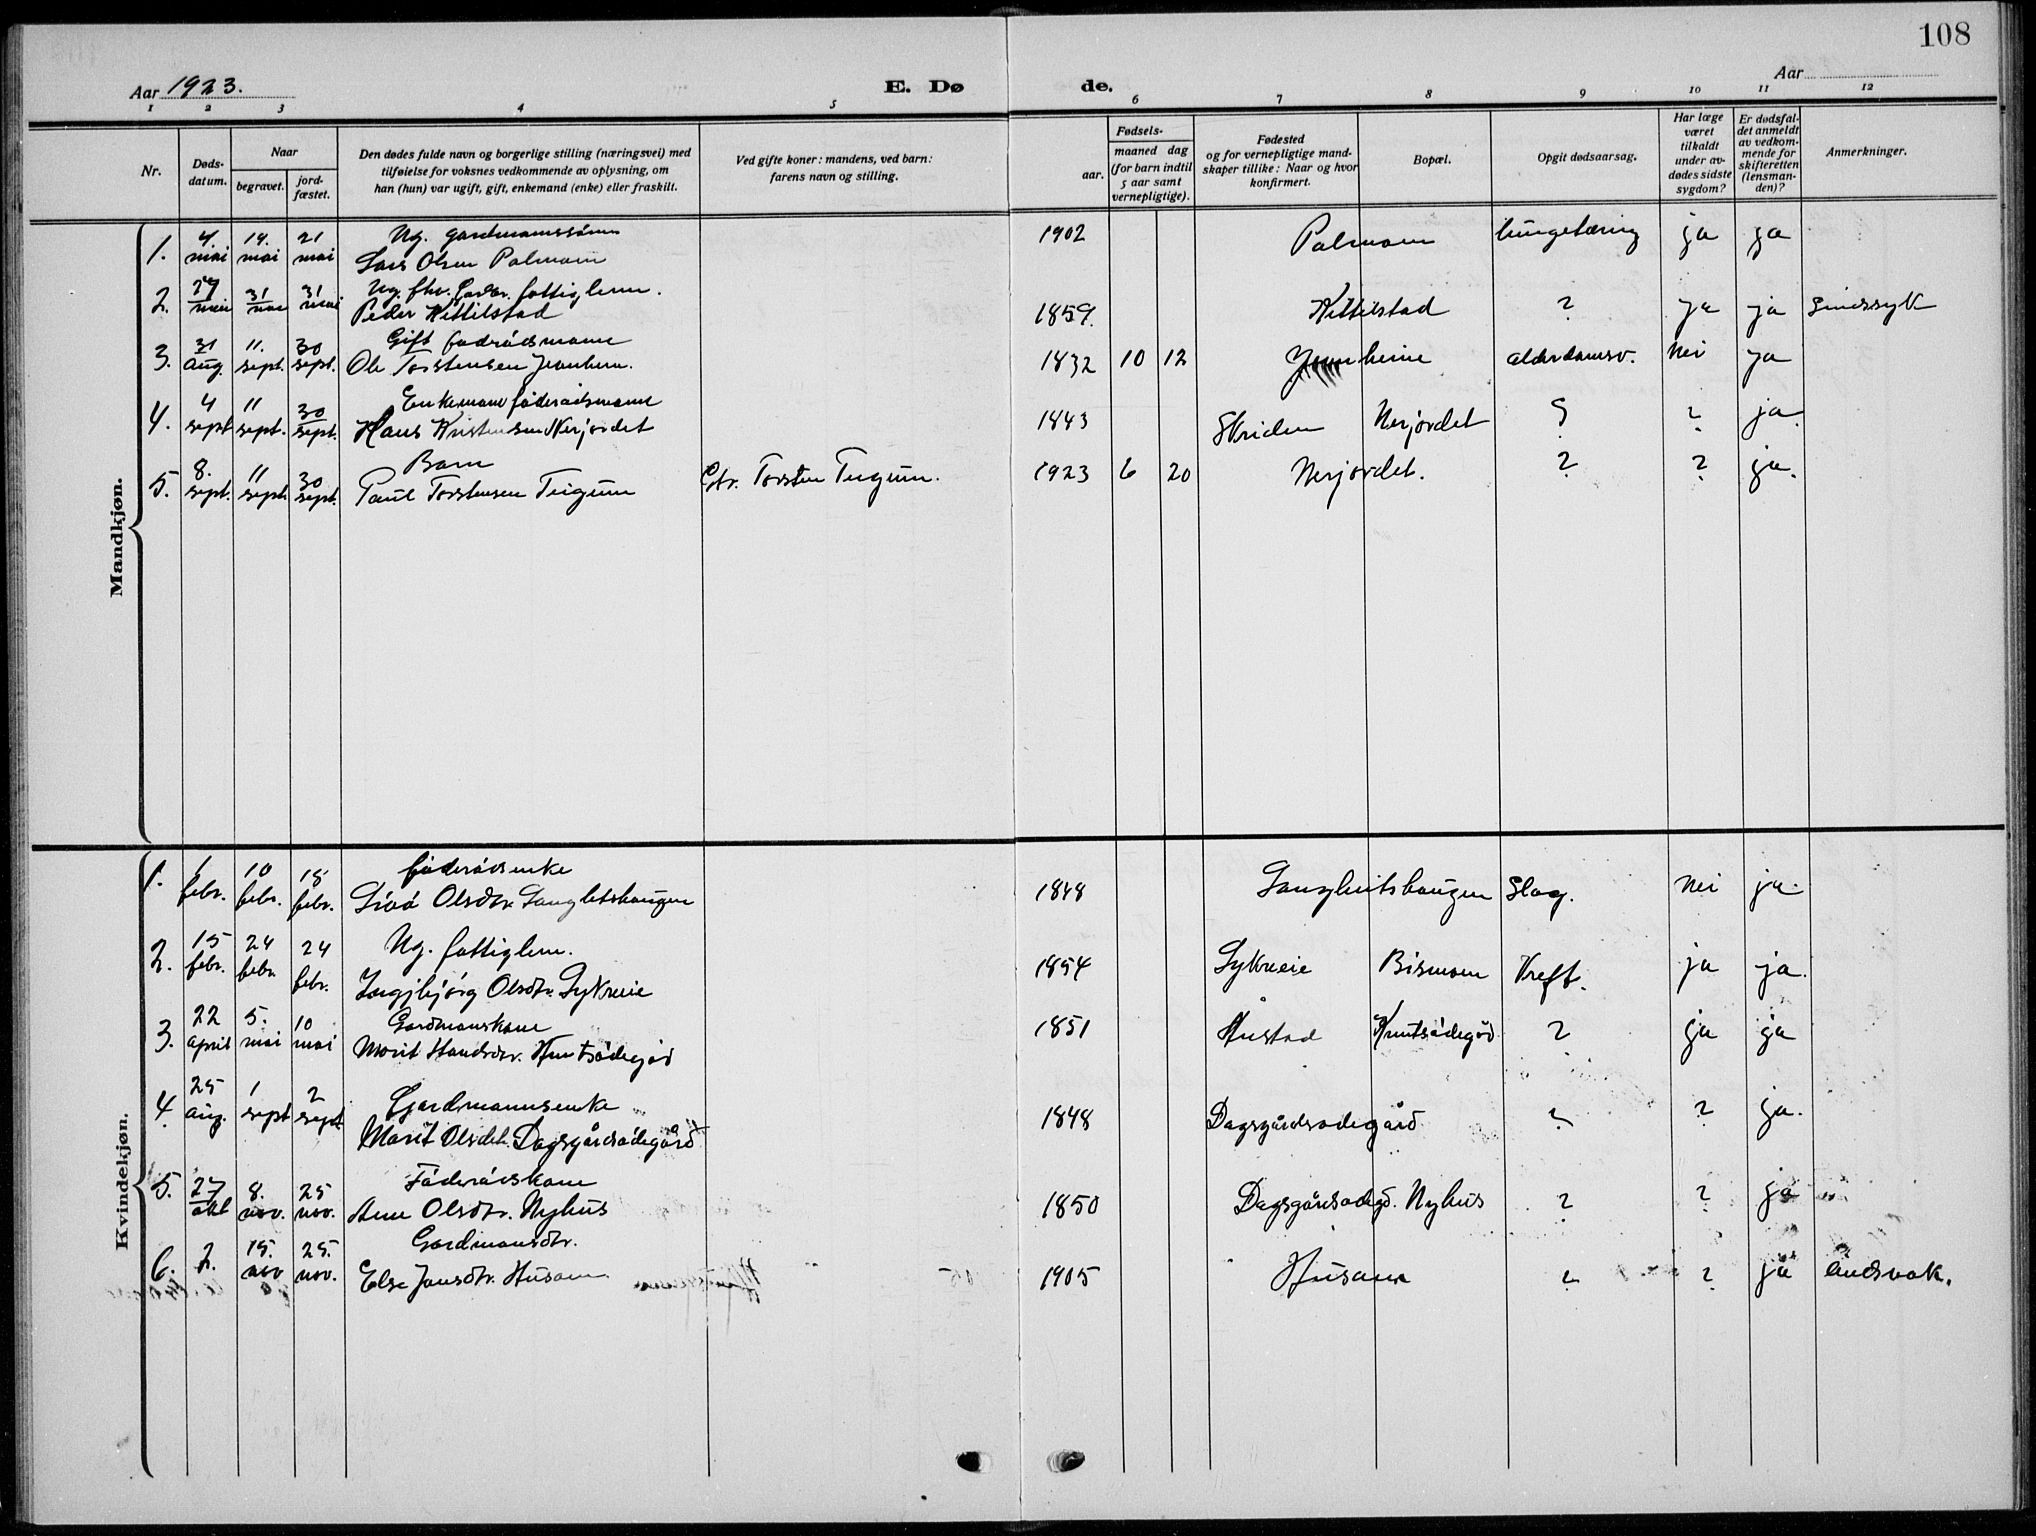 108
Aar 1923.
E. Dø
de.
Aar
1 2 3 4 5 6 7 8 9 10 11 12
Nr.
Døds-
datum.
Naar
begravet.
jord-
fæstet.
Den dødes fulde navn og borgerlige stilling (næringsvei) med
tilføielse for voksnes vedkommende av oplysning, om
han (hun) var ugift, gift, enkemand (enke) eller fraskilt.
Ved gifte koner: mandens, ved barn:
farens navn og stilling.
Fødsels-
aar.
maaned dag
(for barn indtil
5 aar samt
vernepligtige).
Fødested
og for vernepligtige mand-
skaper tillike: Naar og hvor
konfirmert.
Bopæl.
Opgit dødsaarsag.
Har læge
været
tilkaldt
under av-
dødes sidste
sygdom?
Er dødsfal-
det anmeldt
av vedkom-
mende for
skifteretten
(lensman-
den)?
Anmerkninger.
Mandkjøn.
4. 14. 21 Ug. gardmannssønn
1. mai mai mai Lars Olsen Palmom 1902 Palmom lungetæring ja ja
27 31 31 Ug. fhv. fattiglem.
2. mai mai mai Peder Kittilstad 1859. Kittilstad ? ja ja Sinnssyk
31 11. 30 Gift føderådsmann
3. Aug. sept. sept. Ole Torstensen 1832 10 12 alderdomsv. Nei ja
4 11 30 Enkemann føderådsmann
4. sept sept. sept. Hans Kristensen Nerjordet 1843 Skriden Nerjordet ? ? ja.
8. 11 30 Barn
5. sept. sept. sept. Paul Torstensen Teigum Gbr. Torsten Teigum. 1923 6 20 Nerjordet. ? ? ja.
Kvindekjøn.
1 10 18 føderådsenke
1. febr. febr. febr. Olsdtr. 1848 Slag. Nei ja.
15 24 24 Ug. fattiglem.
2. febr. febr. febr. Ingjbjörg Olsdtr. Sykneie 1854 Sykneie Bismom Kreft. ja ja.
22 5. 10 Gardmanskone
3. april mai mai Marit Knutsødegård 1851 Hustad Knutsødegård ? ja ja
25 1 2 Gardmannsenke
4. aug. sept sept Marit Olsdtr. Dagsgårdsødegård 1848 Dagsgårdsødegård ? ? ja.
27 8. 25 Føderådskone
5. okt nov. nov. Ane Olsdtr. Nyhus 1850 Dagsgårdsødegd. Nyhus ? ? ja
15. 25. Gardmansdtr.
6. 2. nov nov. Else Jonsdtr. Husom 1905 Husom ? ? ja Åndsvak.